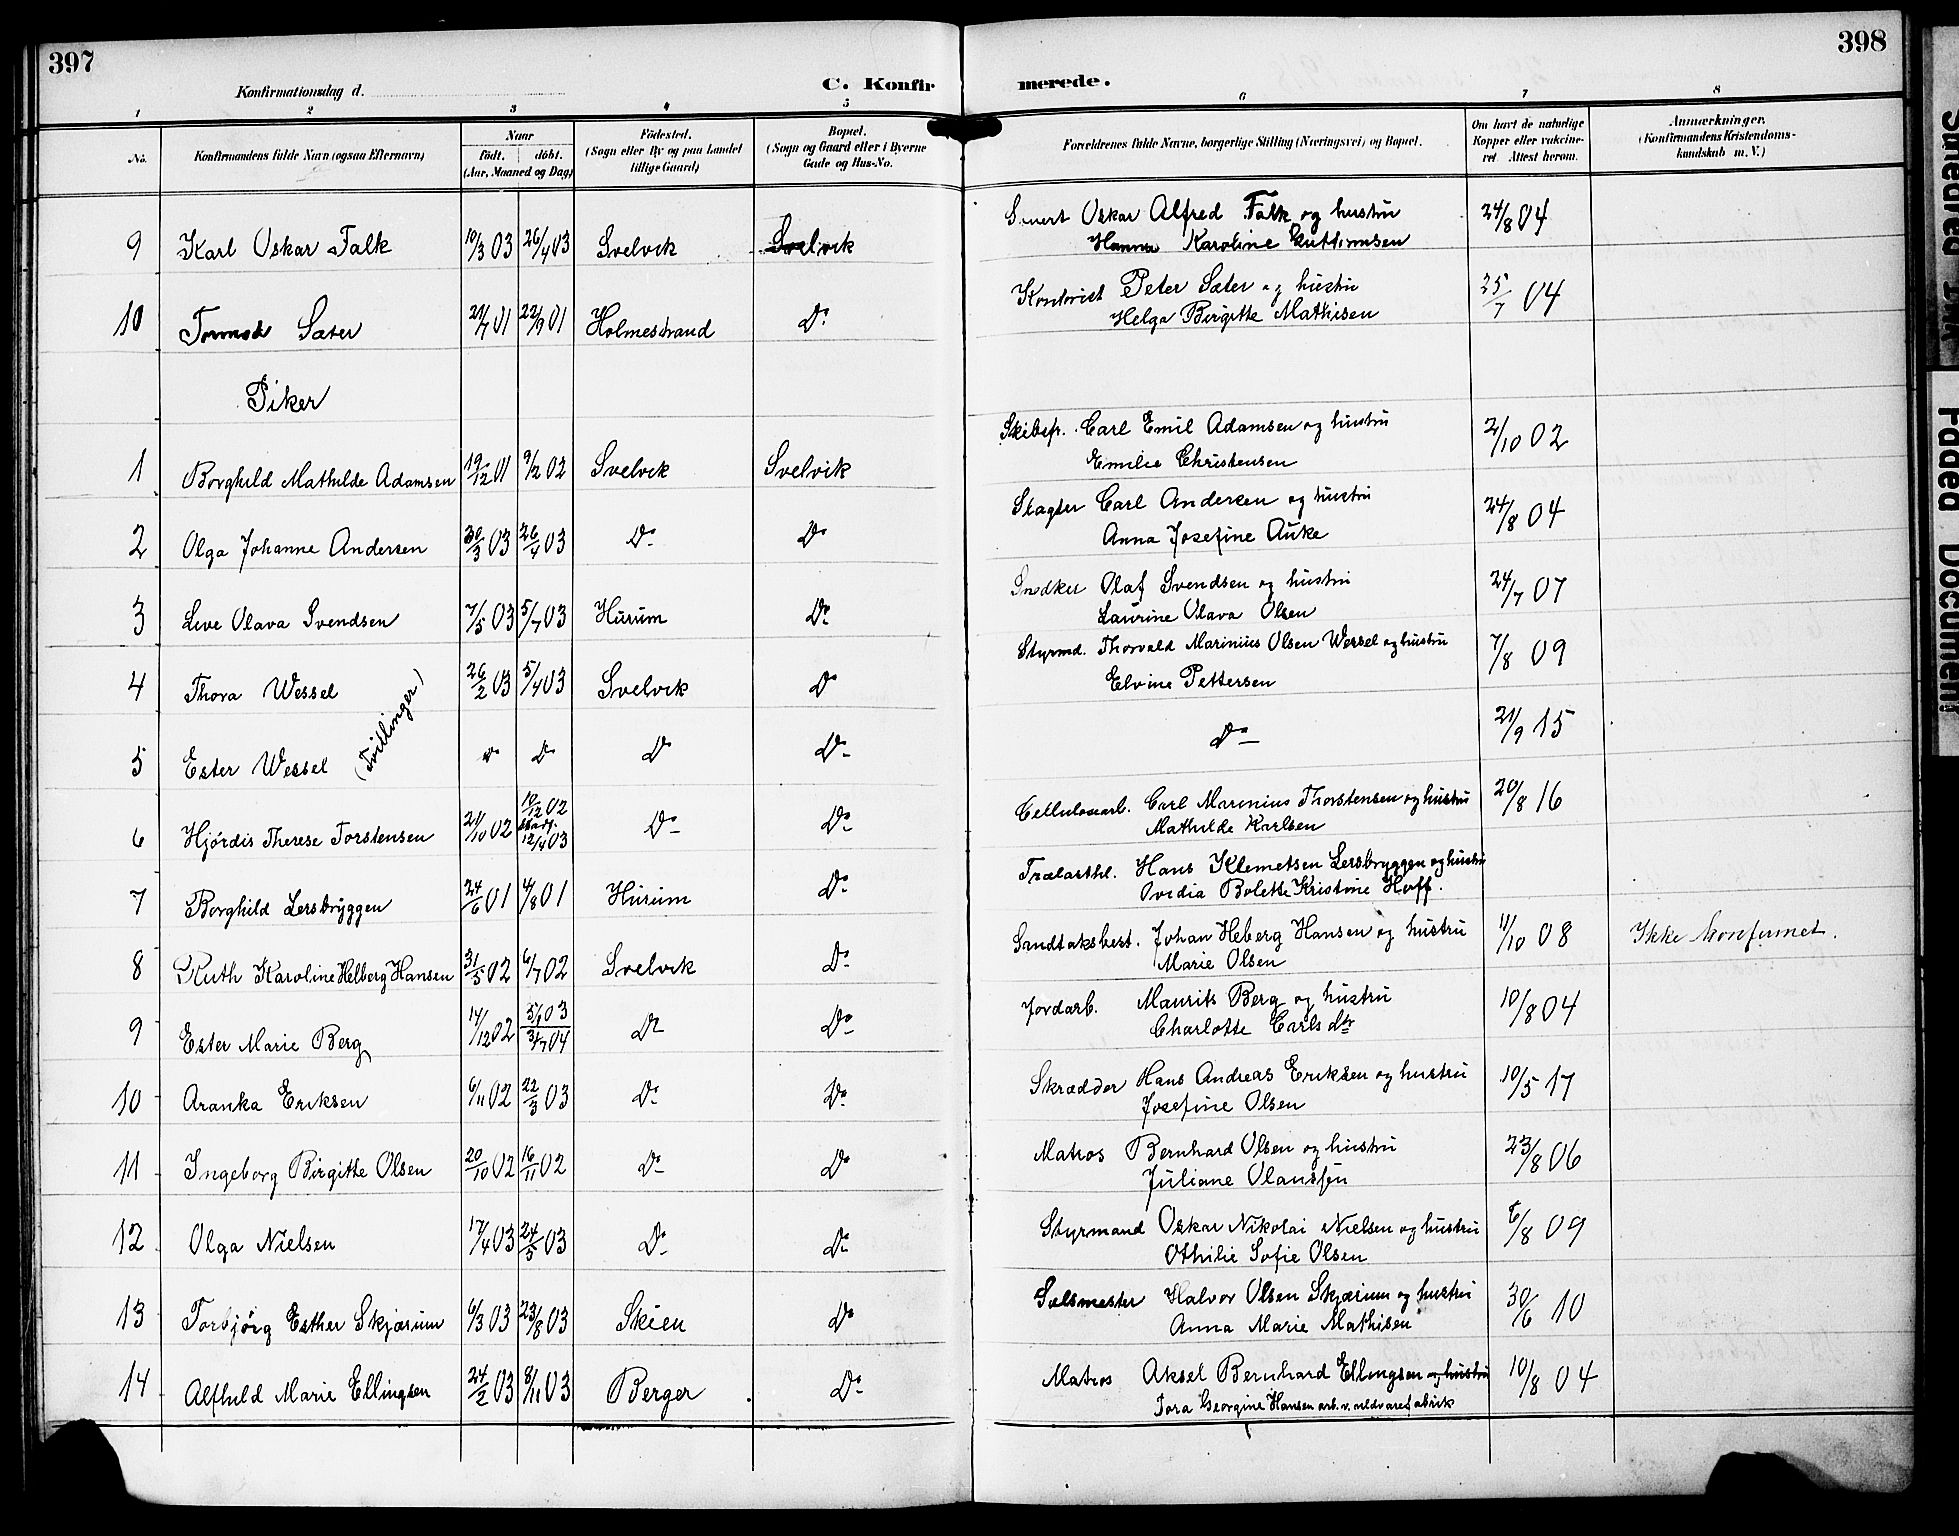 397
398
Konfirmationsdag d.
C. Konfirmerede.
1 2 3 4 5 6 7 8
No. Konfirmandens fulde Navn (ogsaa Efternavn) Naar født. døbt. (Aar, Maaned og Dag) Fødested. (Sogn eller By og paa Landet tillige Gaard) Bopæl. (Sogn og Gaard eller i Byerne Gade og Hus-No. Forældrenes fulde Navne, borgerlige Stilling (Næringsvei) og Bopæl. Om havt de naturlige Kopper eller vakcineret. Attest herom. Anmærkninger. (Konfirmandens Kristendomskundskab m. V.)
9 Karl Oskar Falk 10/3 03 26/4 03 Svelvik Svelvik Oskar Alfred Falk og hustru 24/8 04
Hanna Karoline Guttormsen
10 Tormod Sæter 01 22/9 01 Holmestrand Do Kontorist Peter Sæter og hustru 25/7 04
Helga Birgitte Mathisen
Piker
1 Borghild Mathilde Adamsen 19/12 01 9/2 02 Svelvik Svelvik Skibsf. Carl Emil Adamsen og hustru 2/10 02
Emilie Christensen
2 Olga Johanne Andersen 30/3 03 26/4 03 Do Do Slagter Carl Andersen og hustru 24/8 04
Anna Josefine Auke
3 Live Olava Svendsen 7/5 03 5/7 03 Hurum Do Snedker Olaf Svendsen og hustru 24/7 07
Laurine Olava Olsen
4 Thora Wessel 26/2 03 5/4 03 Svelvik Do Styrmd. Thorvald Marinius Olsen Wessel og hustru 7/8 09
Elvine Pettersen
(Tvillinger)
5 Ester Wessel Do Do Do Do Do 21/9 15
6 Hjørdis Therese Torstensen 21/10 02 10/12 02 Do Do Cellulosearb. Carl Marinius Thorstensen og hustru 20/8 16
12/4 03 Mathilde Karlsen
7 Borghild Lersbryggen 24/6 01 4/8 01 Hurum Do Trælasthl. Hans Klemetsen Lersbryggen og hustru
Ovidia Bolette Kristine Hoff.
8 Ruth Karoline Helberg Hansen 31/5 02 6/7 02 Svelvik Do Sandtaksbest. Johan Heberg Hansen og hustru 11/10 08 Ikke konfirmet.
Marie Olsen
9 Ester Marie Berg 14/12 02 03 Do Do Jordarb. Maurits Berg og hustru 10/8 04
3/7 04 Charlotte Carlsdtr
10 Aranka Eriksen 6/11 02 22/3 03 Do Do Skrædder Hans Andreas Eriksen og hustru 10/5 17
Josefine Olsen
11 Ingeborg Birgitte Olsen 20/10 02 16/11 02 Do Do Matros Bernhard Olsen og hustru 23/8 06
Juliane Olaussen
12 Olga Nielsen 17/4 03 24/5 03 Do Do Styrmand Oskar Nikolai Nielsen og hustru 6/8 09
Othilie Sofie Olsen
13 Torbjørg Esther Skjærum 6/3 03 23/8 03 Skien Do Halvor Olsen Skjærum og hustru 30/6 10
Anna Marie Mathisen
14 Alfhild Marie Ellingsen 24/2 03 8/11 03 Berger Do Matros Aksel Bernhard Ellingsen og hustru 10/8 04
Tora Georgine Hansen arb. v. uldvarefabrik
Faded Document